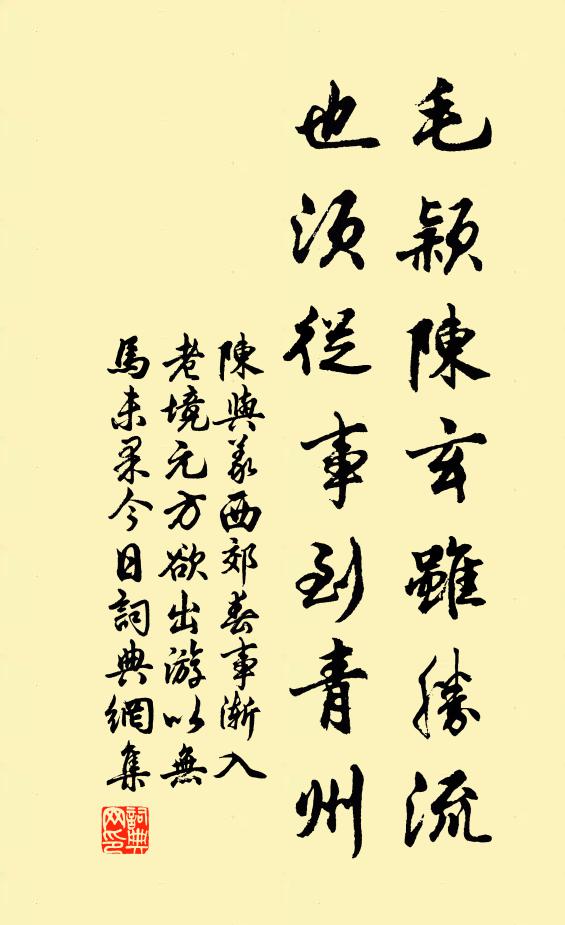 毛穎陳玄雖勝流
也須從事到青州
陳與義西郊春事漸入
老境元方欲出游以無
馬未果今日詞典網集
詞典网印